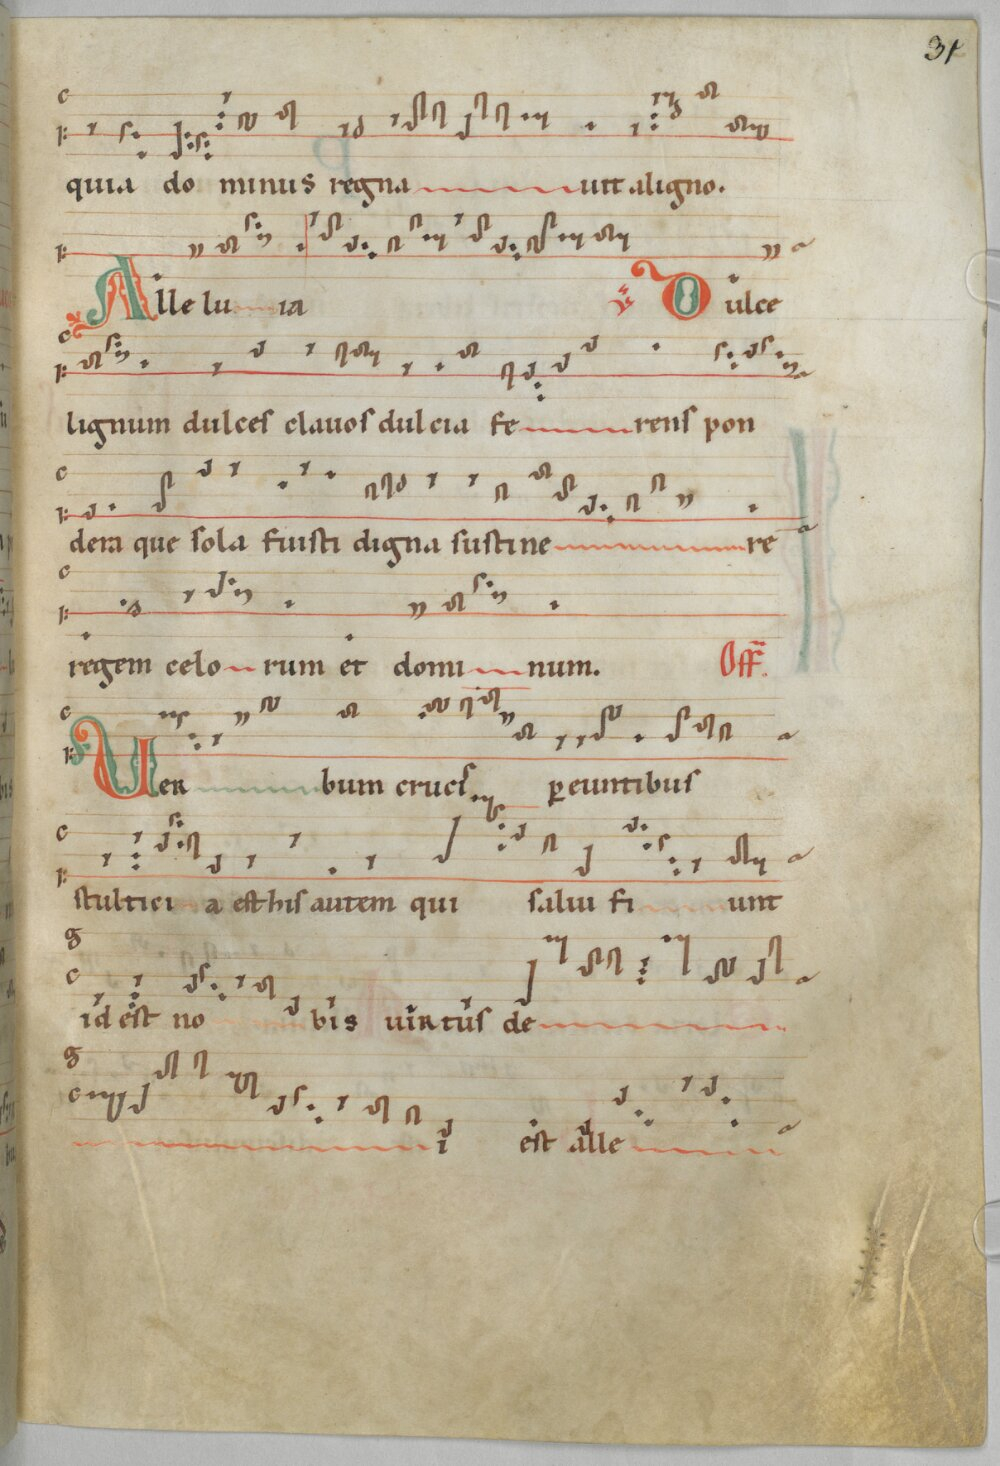 31
quia do minus regna uit aligno.
Alle lu ia Dulce
lignum dulces clauos dulcia fe rens pon
dera que sola fuisti digna sustine re
regem celo rum et domi num. Off.
Uer bum crucis peuntibus
stultici a est his autem qui salui fi unt
id est no bis uirtus de
i est alle